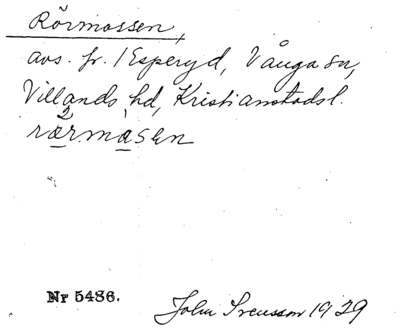 Rörmossen,
avs. fr. 1 Esperyd, Vånga sn,
Villands hd, Kristianstads l.
rærmasen
Nr 5486.
John Svensson 1929